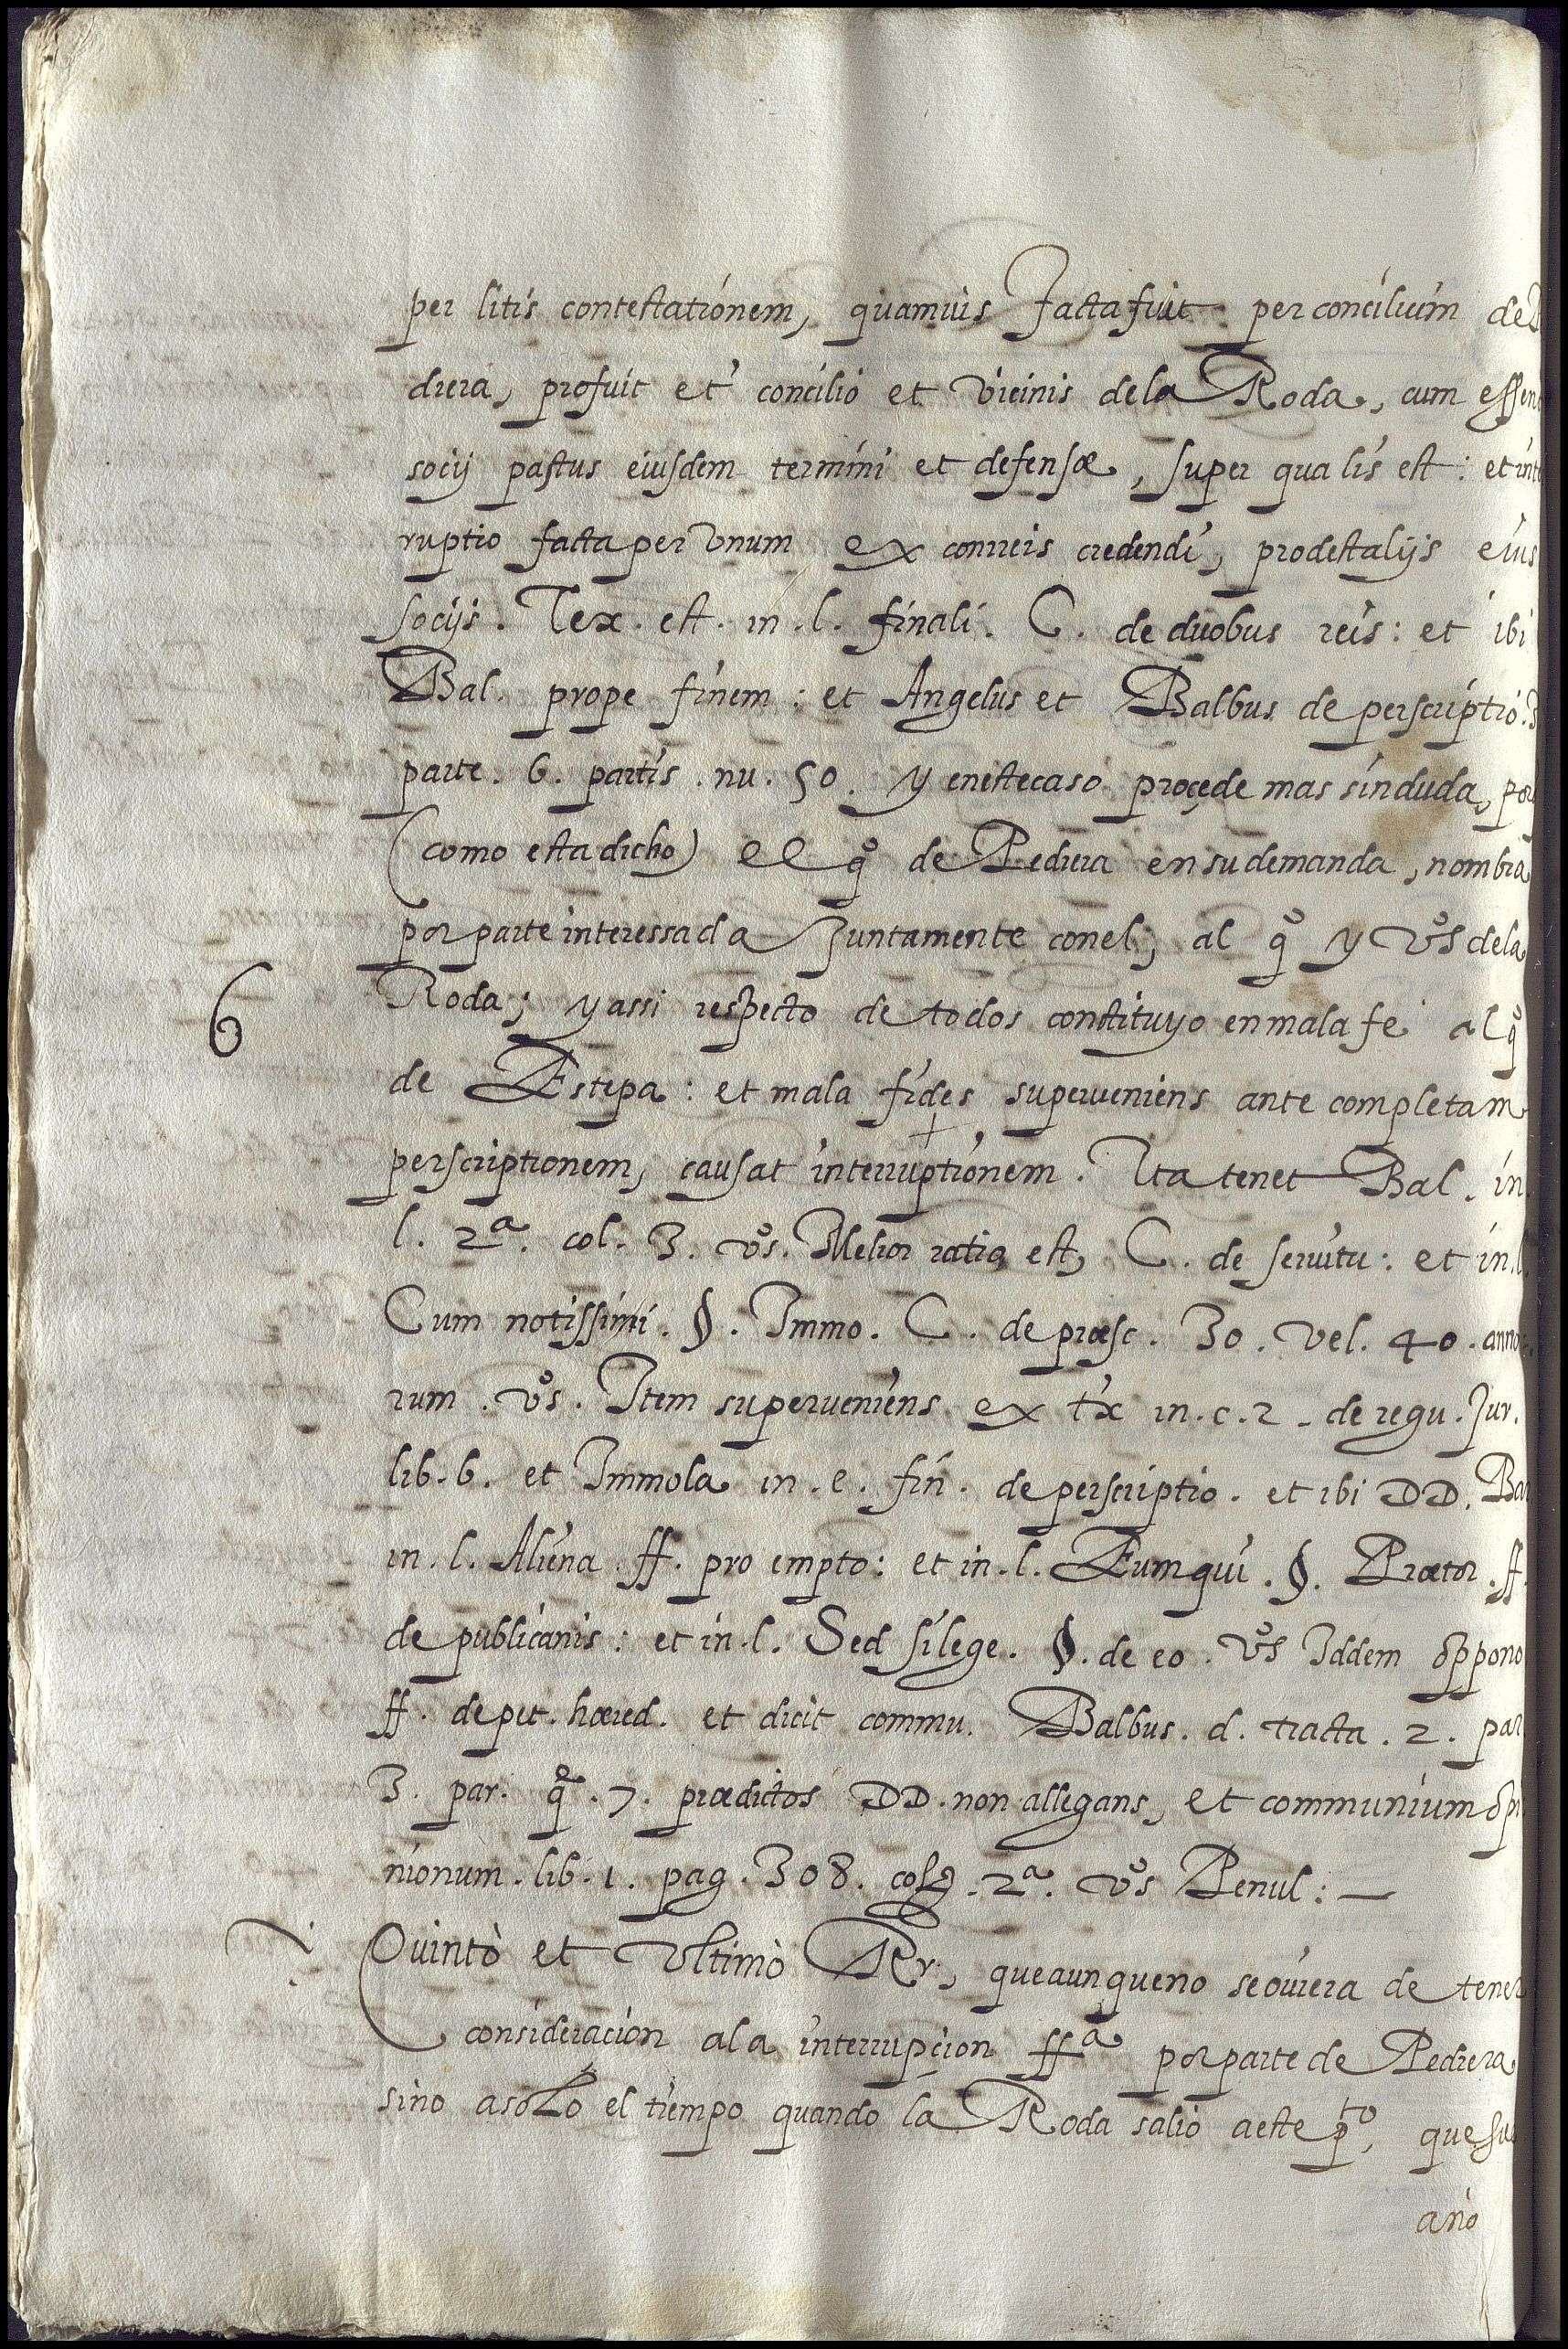 per litis contestationem, quamuis facta fuit per concilium de
drera, profuit et concilio et vicinis de la Roda, cum essent
socij pastus eiusdem termini et defensæ, super qua lis est: et inte
ruptio facta per vnum ex conrreis credendi, prodest alijs eius
socijs. Tex. est. in. l. finali. C. de duobus reis: et ibi
Bal. prope finem: et Angelus et Balbus de perscriptio.
parte. 6. partis. nu. 50. y eneste caso proçede mas sin duda, por
(como esta dicho) el qº de Pedrera en su demanda, nombra
por parte interessada Juntamente conel, al qº y vºs dela
6 Roda; y assi respecto de todos constituyo en mala fe al qº
de Estepa: et mala fides superueniens ante completam
perscriptionem, causat interruptionem. Ita tenet Bal. in.
l. 2ª. col. 3. vºs. Melior ratio est, C. de seruitu: et in. l.
Cum notissimi. §. Immo. C. de præsc. 30. vel. 40. anno
rum. vºs. Item superueniens ex tx in. c. 2. de regu. Jur.
lib. 6. et Immola in. c. fin. de perscriptio. et ibi DD. Bar
in. l. Aliena ff. pro empto: et in. l. Eum qui. §. Prætor. ff.
de publicanis: et in. l. Sed si lege. §. de eo. vºs Iddem oppono
ff. de pet. hæred. et dicit commu. Balbus. d. tracta. 2. par
3. par. qº. 7. prædictos DD. non allegans, et communium opi
nionum. lib. 1. pag. 308. col. 2ª. vºs Penul: —
Quintò et vltimò Rr, que aunque no se ouiera de tener
consideracion ala interrupçion ffª por parte de Pedrera
sino a solo el tiempo quando la Roda salio a este pto, que fue
año